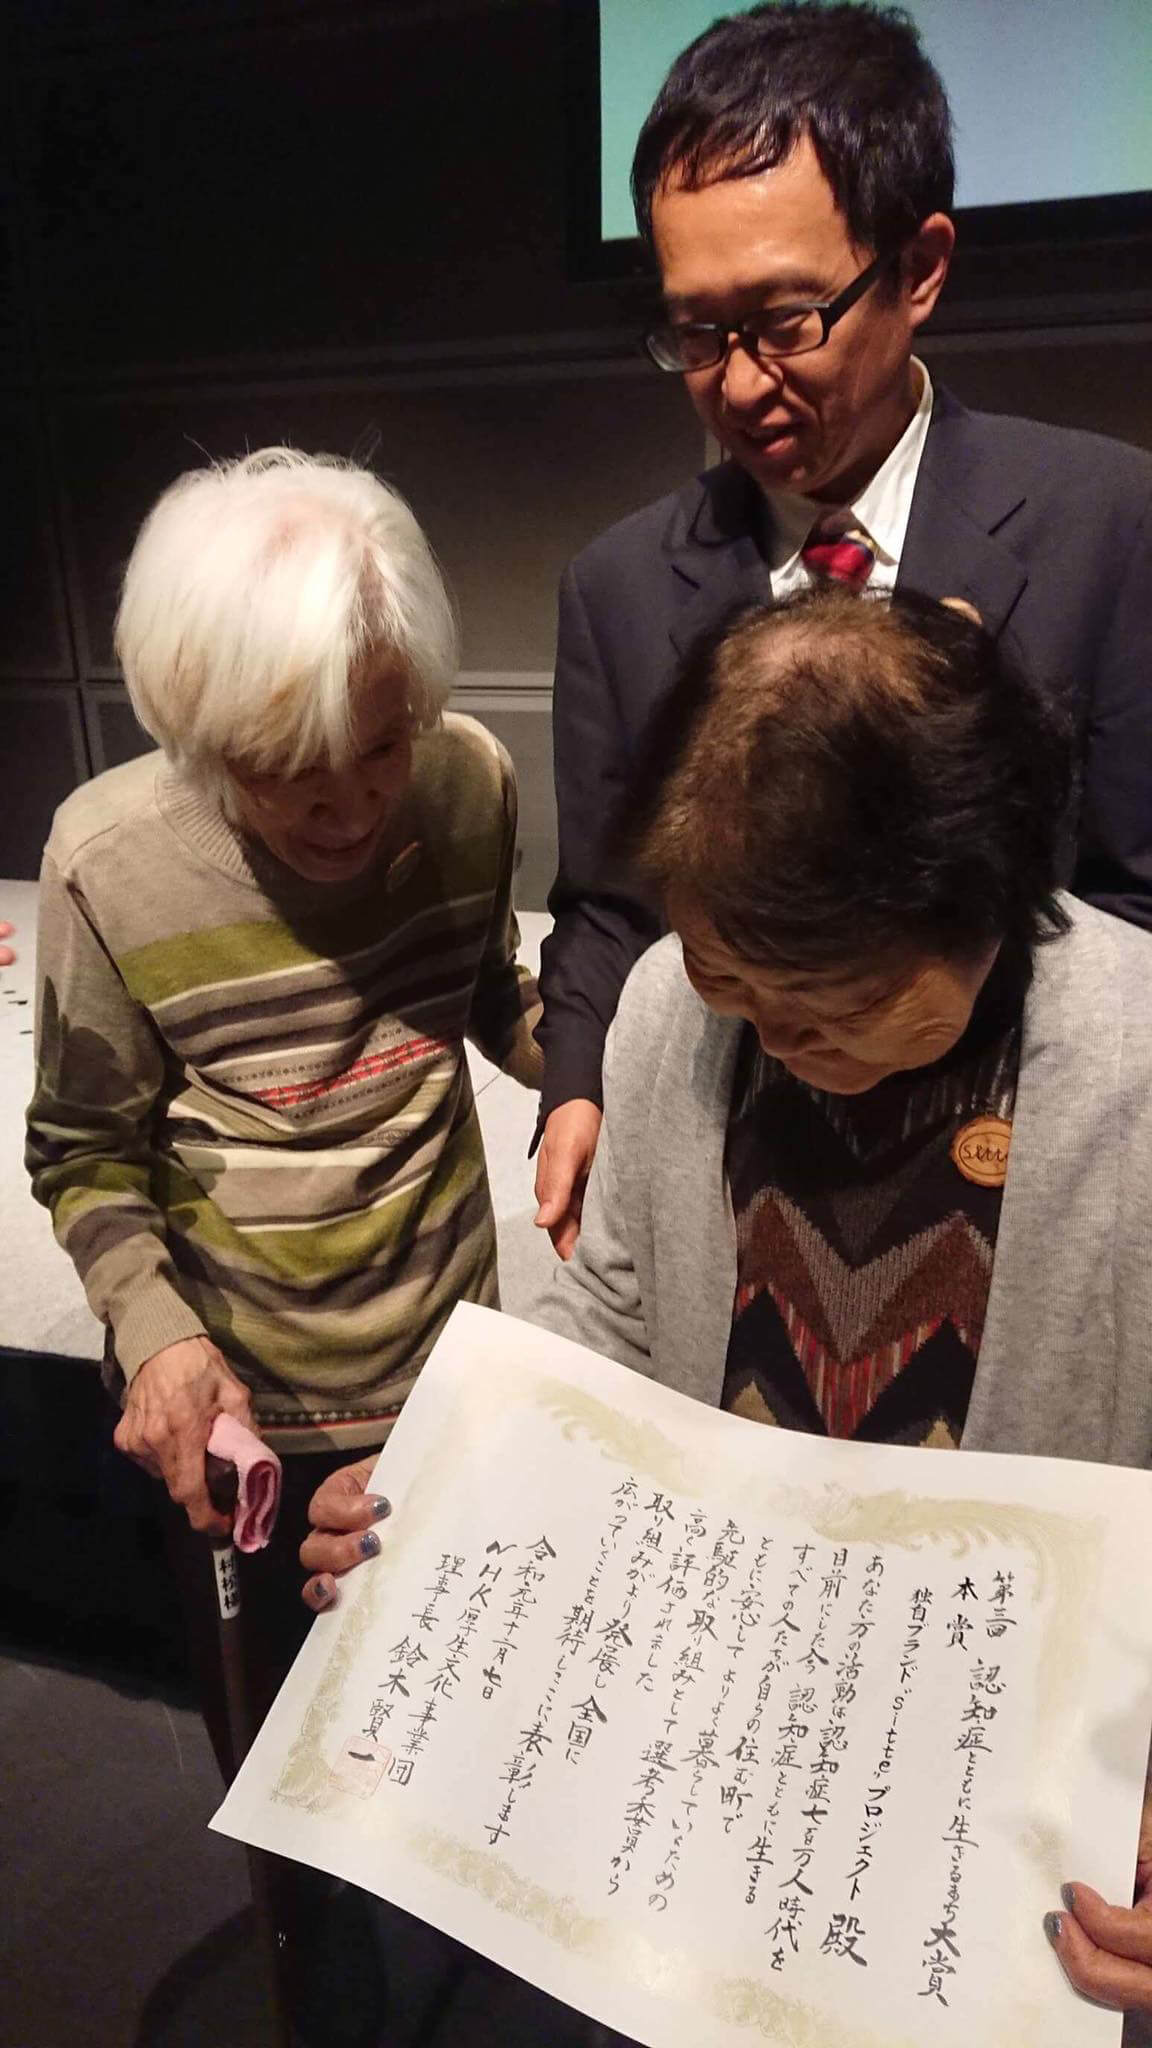 第三回
本賞　認知症とともに生きるまち大賞
独自ブランド"sitte"プロジェクト　殿
あなた方の活動は認知症七百万人時代を
目前にした今　認知症とともに生きる
すべての人たちが自らの住む町で
ともに安心してよりよく暮らしていくための
先駆的な取り組みとして選考委員から
高く評価されました
取り組みがより発展し全国に
広がっていくことを期待しここに表彰します
令和元年十二月七日
NHK厚生文化事業団
理事長　鈴木賢一
sitt